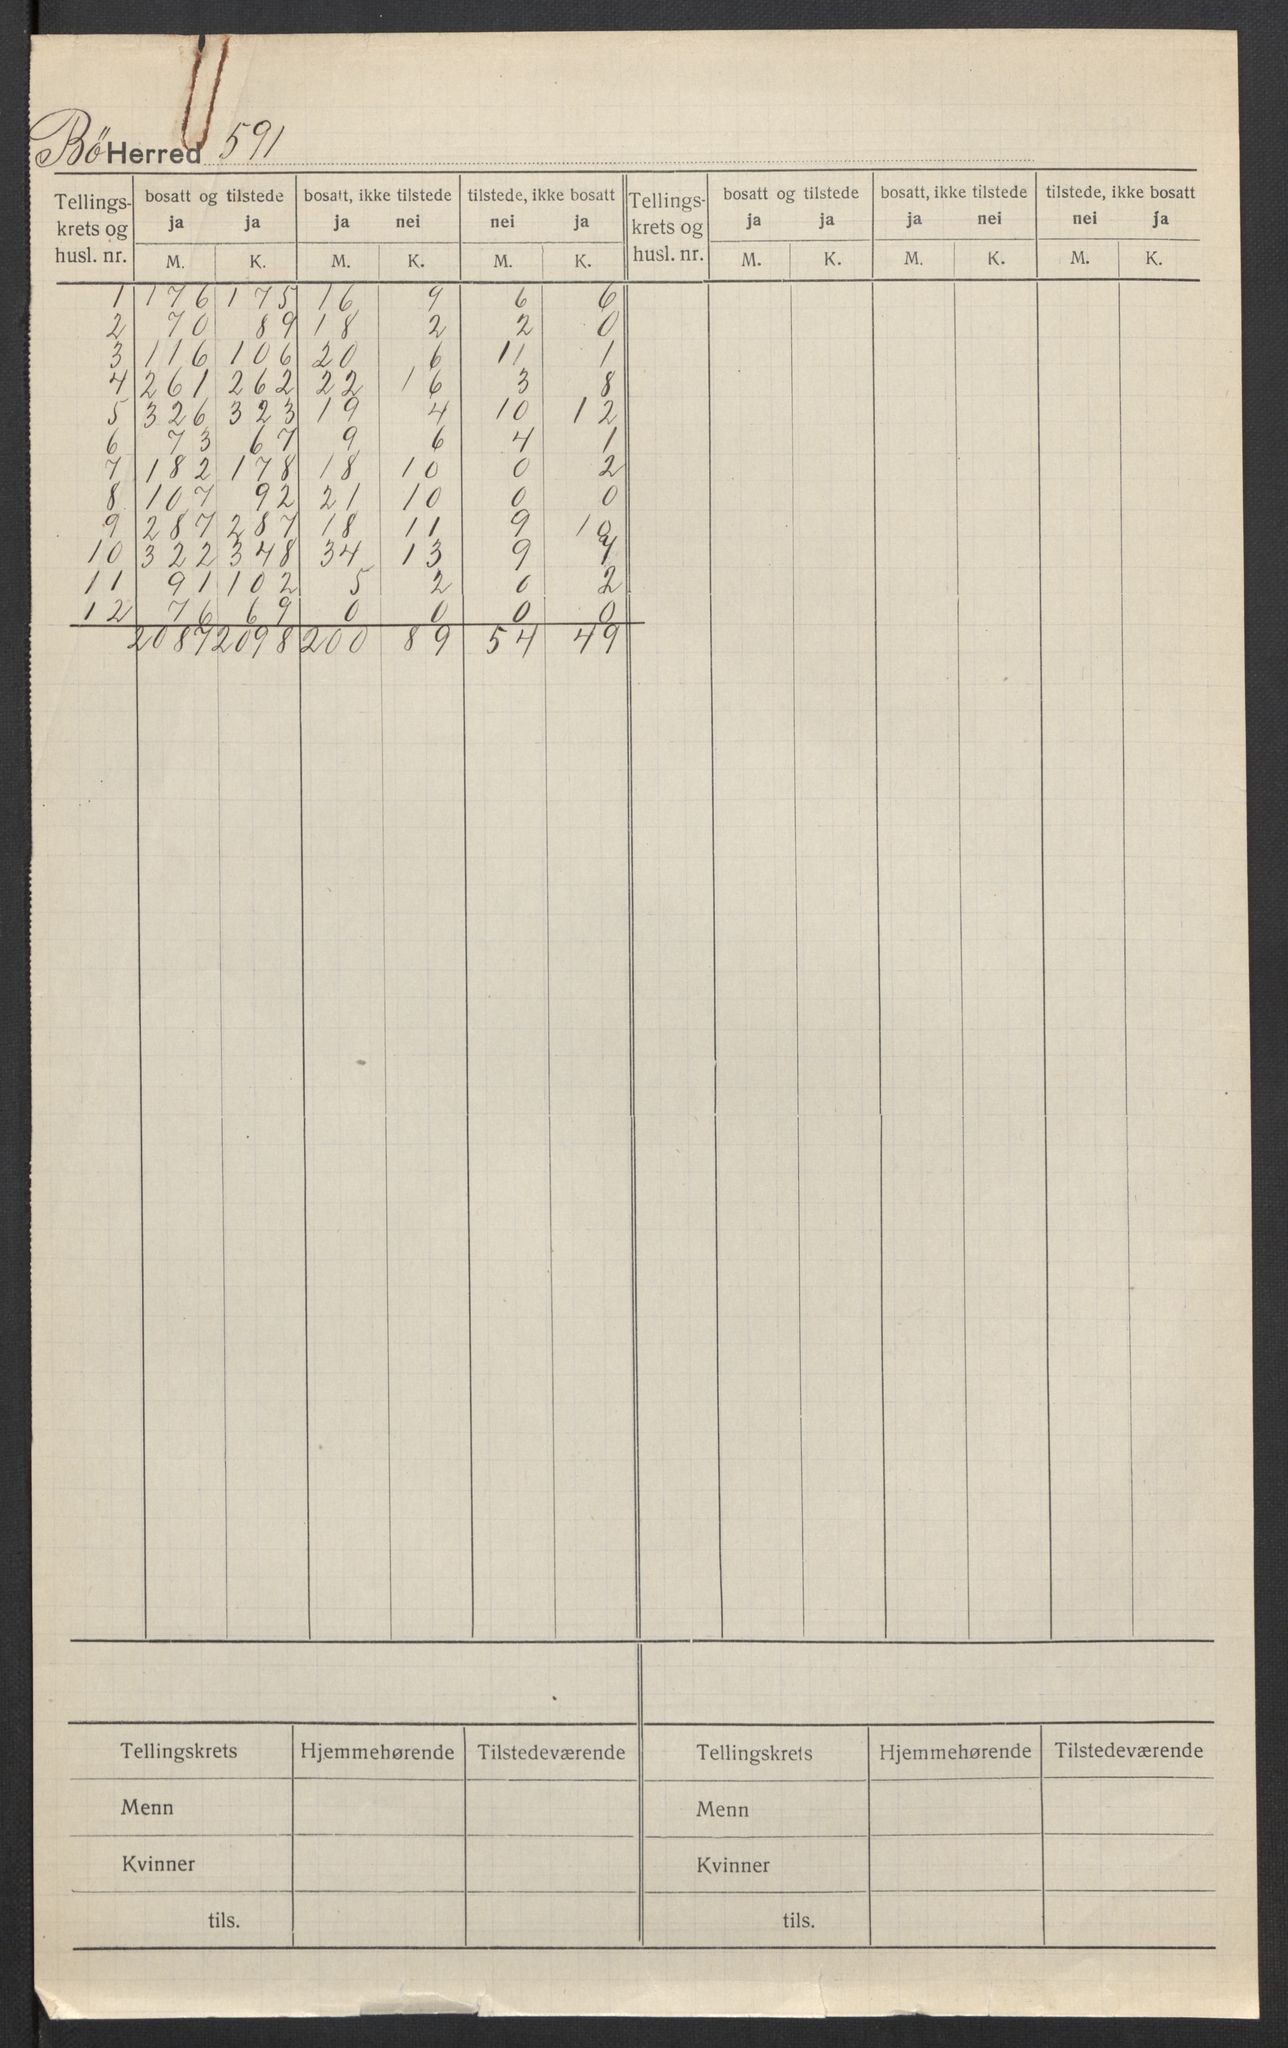 Bø Herred 591
Tellings- krets og husl. nr. bosatt og tilstede bosatt, ikke tilstede tilstede, ikke bosatt Tellings- krets og husl. nr. bosatt og tilstede bosatt, ikke tilstede tilstede, ikke bosatt
ja ja ja nei nei ja ja ja ja nei nei ja
M. K. M. K. M. K. M. K. M. K. M. K.
1 176 175 16 9 6 6
2 70 89 18 2 2 0
3 116 106 20 6 11 1
4 261 262 22 16 3 8
5 326 323 19 4 10 12
6 73 67 9 6 4 1
7 182 178 18 10 0 2
8 107 92 21 10 0 0
9 287 287 18 11 9 10
10 322 348 34 13 9 7
11 91 102 5 2 0 2
12 76 69 0 0 0 0
2087 2098 200 89 54 49
Tellingskrets Hjemmehørende Tilstedeværende Tellingskrets Hjemmehørende Tilstedeværende
Menn Menn
Kvinner Kvinner
tils. tils.